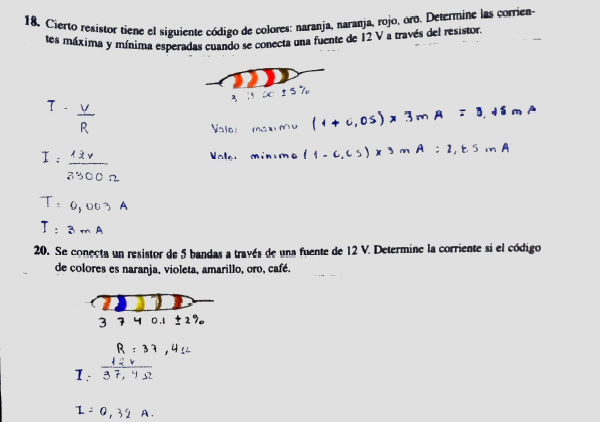 18. Cierto resistor tiene el siguiente código de colores: naranja, naranja, rojo, oro. Determine las corrien-
tes máxima y mínima esperadas cuando se conecta una fuente de 12 V a través del resistor.
3 3 00 ±5%
I = V
R
Valor maximo (1 + 0,05) x 3 m A = 3,15 m A
I = 12v
3300 Ω
Valor minimo (1 - 0,05) x 3 m A = 2,85 m A
I = 0,003 A
I = 3 m A
20. Se conecta un resistor de 5 bandas a través de una fuente de 12 V. Determine la corriente si el código
de colores es naranja, violeta, amarillo, oro, café.
3 7 4 0.1 ±2%
R = 37,4 Ω
I = 12 v
37,4 Ω
I = 0,32 A.